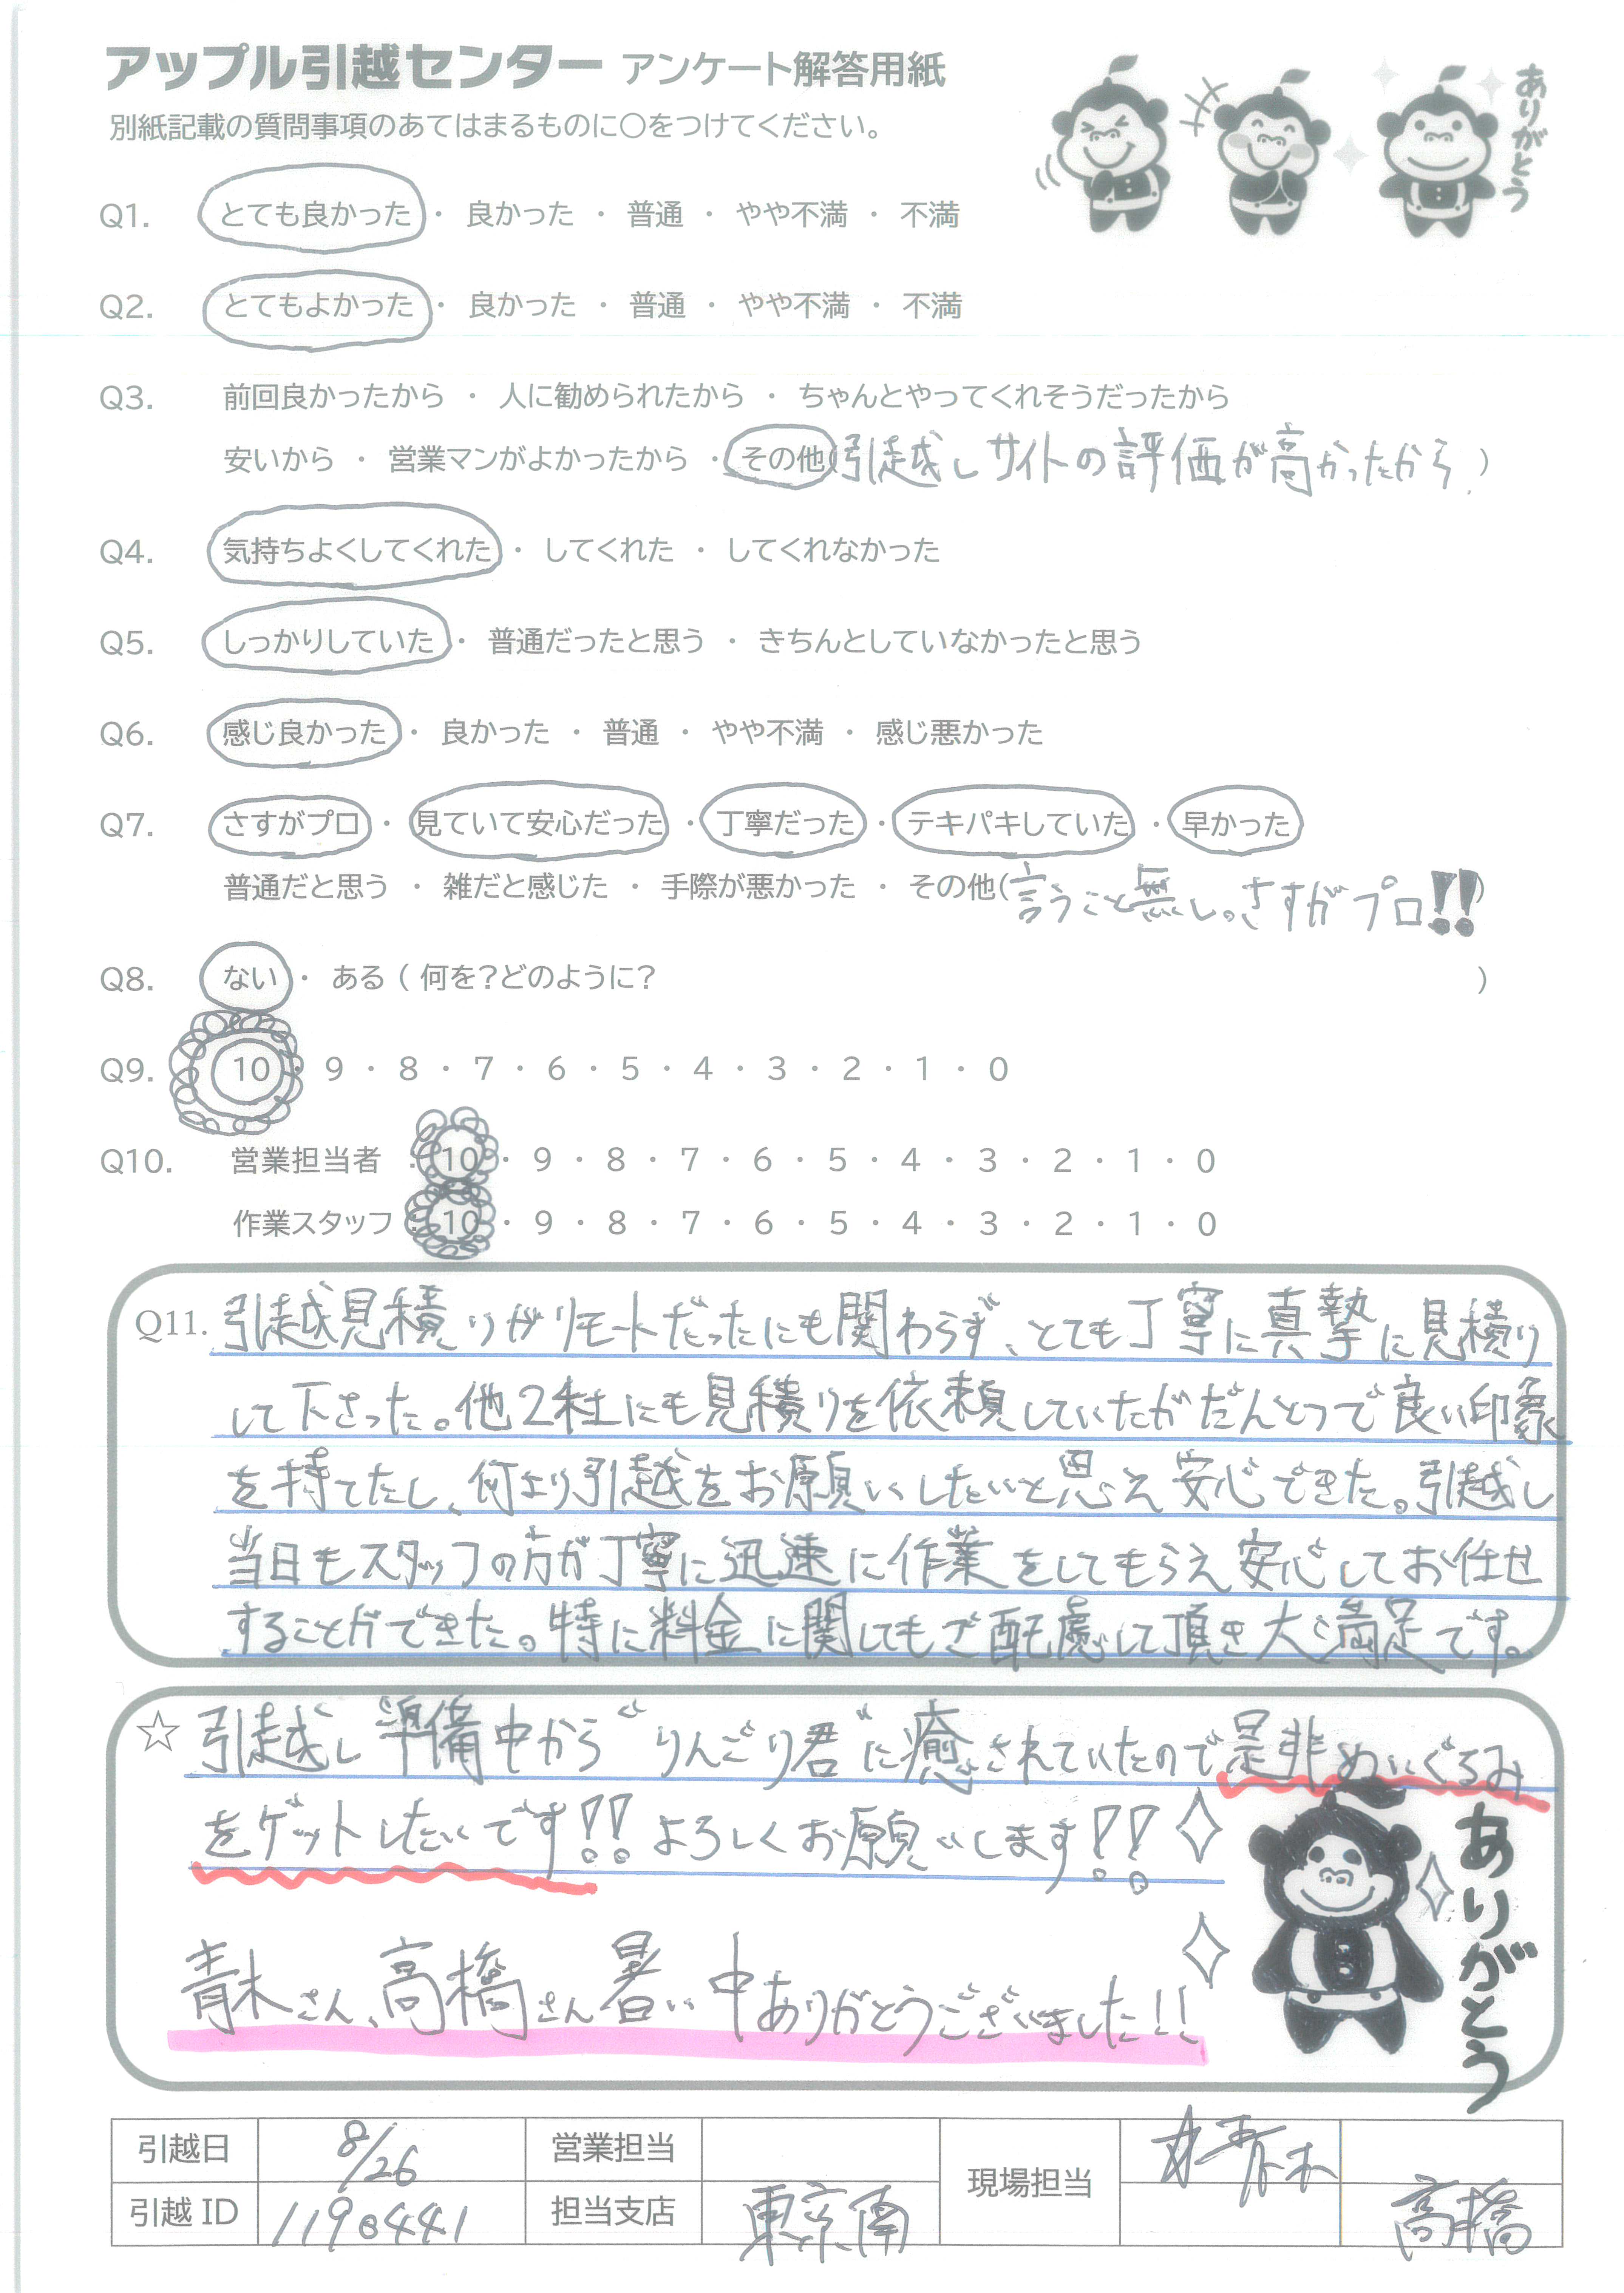 アップル引越センター アンケート解答用紙
別紙記載の質問事項のあてはまるものに○をつけてください。
ありがとう
Q1. とても良かった ・ 良かった ・ 普通 ・ やや不満 ・ 不満
Q2. とてもよかった ・ 良かった ・ 普通 ・ やや不満 ・ 不満
Q3. 前回良かったから ・ 人に勧められたから ・ ちゃんとやってくれそうだったから
安いから ・ 営業マンがよかったから ・ その他(引越しサイトの評価が高かったから。)
Q4. 気持ちよくしてくれた ・ してくれた ・ してくれなかった
Q5. しっかりしていた ・ 普通だったと思う ・ きちんとしていなかったと思う
Q6. 感じ良かった ・ 良かった ・ 普通 ・ やや不満 ・ 感じ悪かった
Q7. さすがプロ ・ 見ていて安心だった ・ 丁寧だった ・ テキパキしていた ・ 早かった
普通だと思う ・ 雑だと感じた ・ 手際が悪かった ・ その他(言うこと無し。さすがプロ!!)
Q8. ない ・ ある ( 何を?どのように? )
Q9. 10 ・ 9 ・ 8 ・ 7 ・ 6 ・ 5 ・ 4 ・ 3 ・ 2 ・ 1 ・ 0
Q10. 営業担当者 : 10 ・ 9 ・ 8 ・ 7 ・ 6 ・ 5 ・ 4 ・ 3 ・ 2 ・ 1 ・ 0
作業スタッフ : 10 ・ 9 ・ 8 ・ 7 ・ 6 ・ 5 ・ 4 ・ 3 ・ 2 ・ 1 ・ 0
Q11. 引越見積りがリモートだったにも関わらず、とても丁寧に真摯に見積り
して下さった。他2社にも見積りを依頼していたがだんとつで良い印象
を持てたし、何より引越をお願いしたいと思え安心できた。引越し
当日もスタッフの方が丁寧に迅速に作業をしてもらえ安心してお任せ
することができた。特に料金に関してもご配慮して頂き大満足です。
☆ 引越し準備中から"りんごり君"に癒されていたので是非ぬいぐるみ
をゲットしたいです!! よろしくお願いします!!
ありがとう
青木さん、高橋さん暑い中ありがとうございました!!
引越日 8/26 営業担当 現場担当 青木
引越ID 1190441 担当支店 東京南 高橋